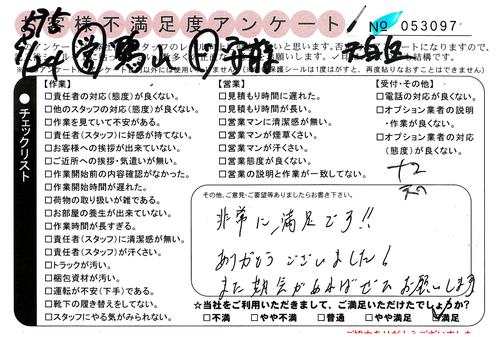 お客様不満足度アンケート
No 053097
【作業】
□責任者の対応(態度)が良くない。
□他のスタッフの対応(態度)が良くない。
□作業を見ていて不安がある。
□責任者(スタッフ)に好感が持てない。
□お客様への挨拶が出来ていない。
□ご近所への挨拶・気遣いが無い。
□作業開始前の内容確認がなかった。
□作業開始時間が遅れた。
□荷物の取り扱いが雑である。
□お部屋の養生が出来ていない。
□作業時間が長すぎる。
□責任者(スタッフ)に清潔感が無い。
□責任者(スタッフ)が汗くさい。
□トラックが汚い。
□梱包資材が汚い。
□運転が不安(下手)である。
□靴下の履き替えをしてない。
□スタッフにやる気がみられない。
【営業】
□見積もり時間に遅れた。
□見積もり時間が長い。
□営業マンに清潔感が無い。
□営業マンが煙草くさい。
□営業マンが汗くさい。
□営業態度が良くない。
□営業の説明と作業が一致してない。
【受付・その他】
□電話の対応が良くない。
□オプション業者の説明
・作業が良くない。
□オプション業者の対応
(態度)が良くない。
チェックリスト
その他、ご意見・ご要望等ありましたらお書き下さい。
非常に満足です!!
ありがとうございました!
また機会があればぜひお願いします
☆当社をご利用いただきまして、ご満足いただけたでしょうか?
□不満 □やや不満 □普通 □やや満足 ☑満足